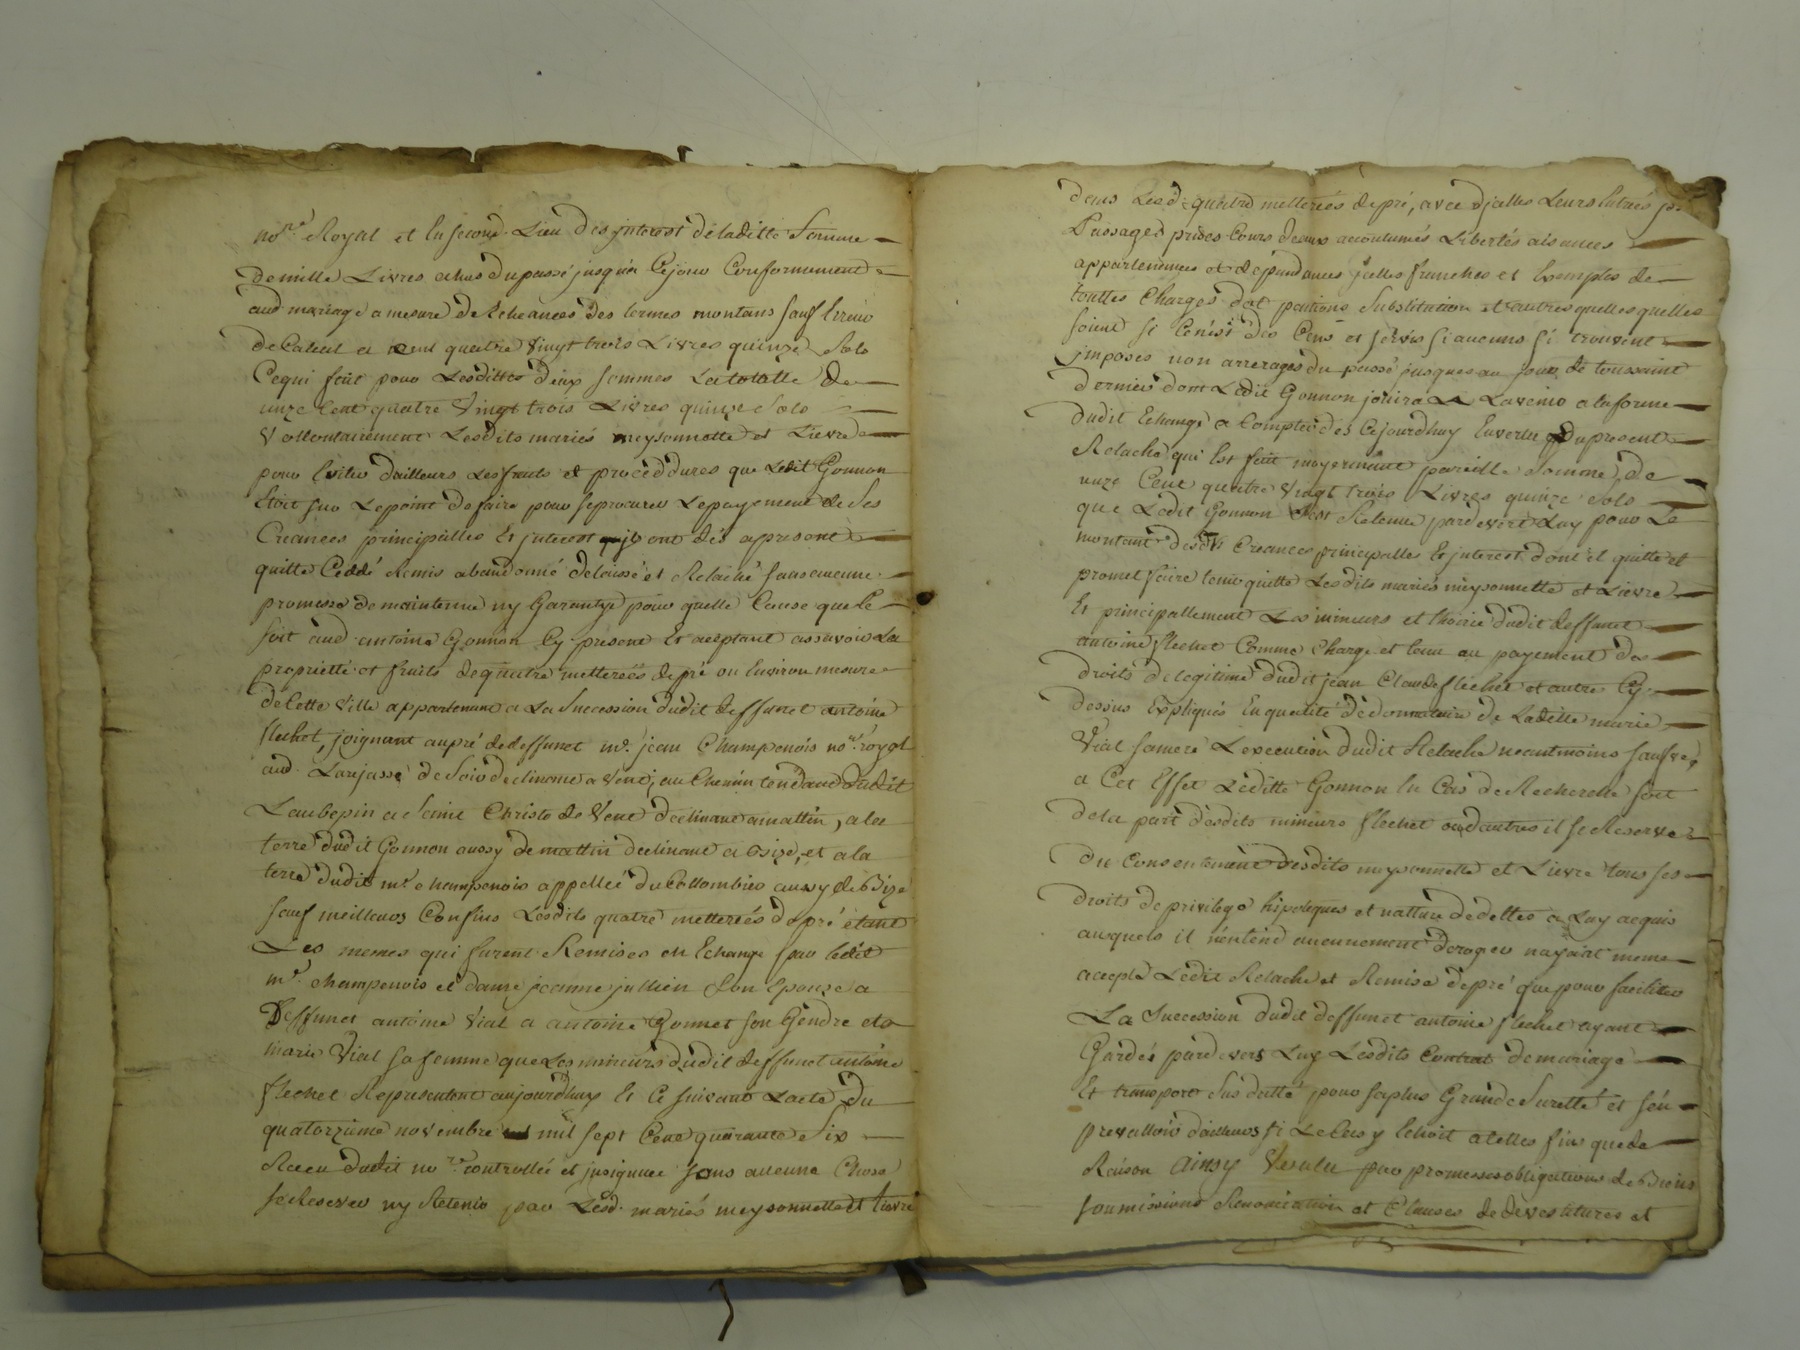 no.re Royal et en second Lieu des jnterest de laditte Somme
de mille Livres echus du passé jusqua Cejour Conformement
aud mariage a mesure de Echeances des termes montans sauf Erreur
de Calcul a cent quatre Vingt trois Livres quinze Sols
Cequi fait pour Lesdittes deux sommes La totalle de
unze Cent quatre Vingt trois Livres quinze Sols
Vollontairement Lesdits mariés meysonnette et Lievre
pour Eviter dailleurs Les fraits et procèddures que Ledit Gonnon
Etoit sur Le point de faire pour se procurer Le payement de Ses
Creances principalles Et jnterest quils ont dés apresent
quitte Ceddé Remis abandonné delaissé et Relaché sans aucune
promesse de maintenue ny Garantye pour quelle Cause que Ce
soit aud. antoine Gonnon Cy present Et aceptant assavoir La
proprietté et fruits de quatre metterées de pré ou Environ mesure
de Cette Ville appartenant a La Succession dudit deffunct antoine
flechet, joignant au pré de deffunct m.e jean Champenois no.re royal
aud. Larajasse de Soir declinant a Vent, au Chemin tendant dudit
Laubepin a Saint Christo de Vent declinant a mattin, a la
terre dudit Gonnon aussy de mattin declinant a Bize, et a la
terre dudit m.e champenois appellée du Collombier aussy de Bize
sauf meilleurs Confins Lesdits quatre metterées de pré étant
Les memes qui furent Remises en Echange par ledit
m.e champenois et dame jeanne jullien Son Epouse a
Deffunct antoine Vial a antoine Gonnet son Gendre et a
marie Vial sa femme que Les mineurs dudit deffunct antoine
flechet Representent aujourdhuy Et Ce suivant Lacte du
quatorzieme novembre mil sept Cent quarante Six
Receu dudit no.re controllée et jnsignuee sans aucune Chose
se Reserver ny Retenir par Lesd. mariés meysonnette et Lievre
dans Lesd. quatre metterées de pré, avec djcelles Leurs Entrées
Passages prises Cours deaux acoutumés Libertés aisances
appartenances et dépendances jcelles franches et Exemptes de
touttes Charges, Substitution et autres quelles quelles
soient si Ce nést des Cens et servis si aucuns si trouvent
jmposés non arreragés du passé jusques au jour de toussaint
dernier dont Ledit Gonnon jouira a Lavenir a la forme
dudit Echange a Compter dés Cejourdhuy En vertu du present
Relaché qui Est fait moyennant pareille Somme de
unze Cent quatre Vingt trois Livres quinze Sols
que Ledit Gonnon Sest Retenue pardevert Luy pour Le
montant desdts Creances principalles Et jnterest dont il quitte et
promet faire tenir quitte Lesdits mariés meysonnette et Lievre
Et principallement Les mineurs et Choirie dudit deffunct
antoine flechet Comme Chargé et tenu au payement des
droits de legitime dudit jean Claude flechet et autre Cy
dessus Expliqués En qualité de donnataire de Laditte marie
Vial sa mere Lexecution dudit Relaché neantmoins sauf
a Cet Effet Leditte Gonnon En Cas de Recherche soit
de la part desdits mineurs flechet ou dautres il se Reserve
du Consentement desdits meysonnette et Lievre tous ses
droits de privilege hipoteques et nature de dettes a Luy acquis
auxquels il nentend aucunement deroger nayant meme
acepté Ledit Relaché et Remise de pré que pour faciliter
La Succession dudit deffunct antoine flechet ayant
Gardés pardevers Luy Lesdits Contrat de mariage
Et transport Sus datté pour sa plus Grande Suretté et sén
prevalloir dailleurs si Le Cas y Echoit a telles fins que de
Raison Ainsy Voulu par promesses obligations de Biens
soumissions Renonciation et Clauses de devestitures et